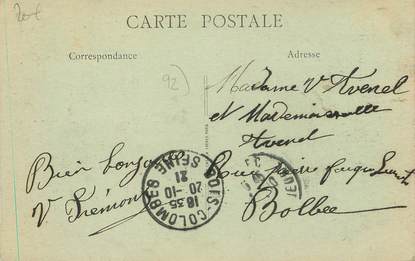 20f
CARTE POSTALE
Correspondance
Adresse
92
Madame V Avenel
et Mademoiselle
Avenel
Bien bonjour
V Frémont
BOIS-COLOMBES
SEINE
18 35
20-10
21
Bolbec